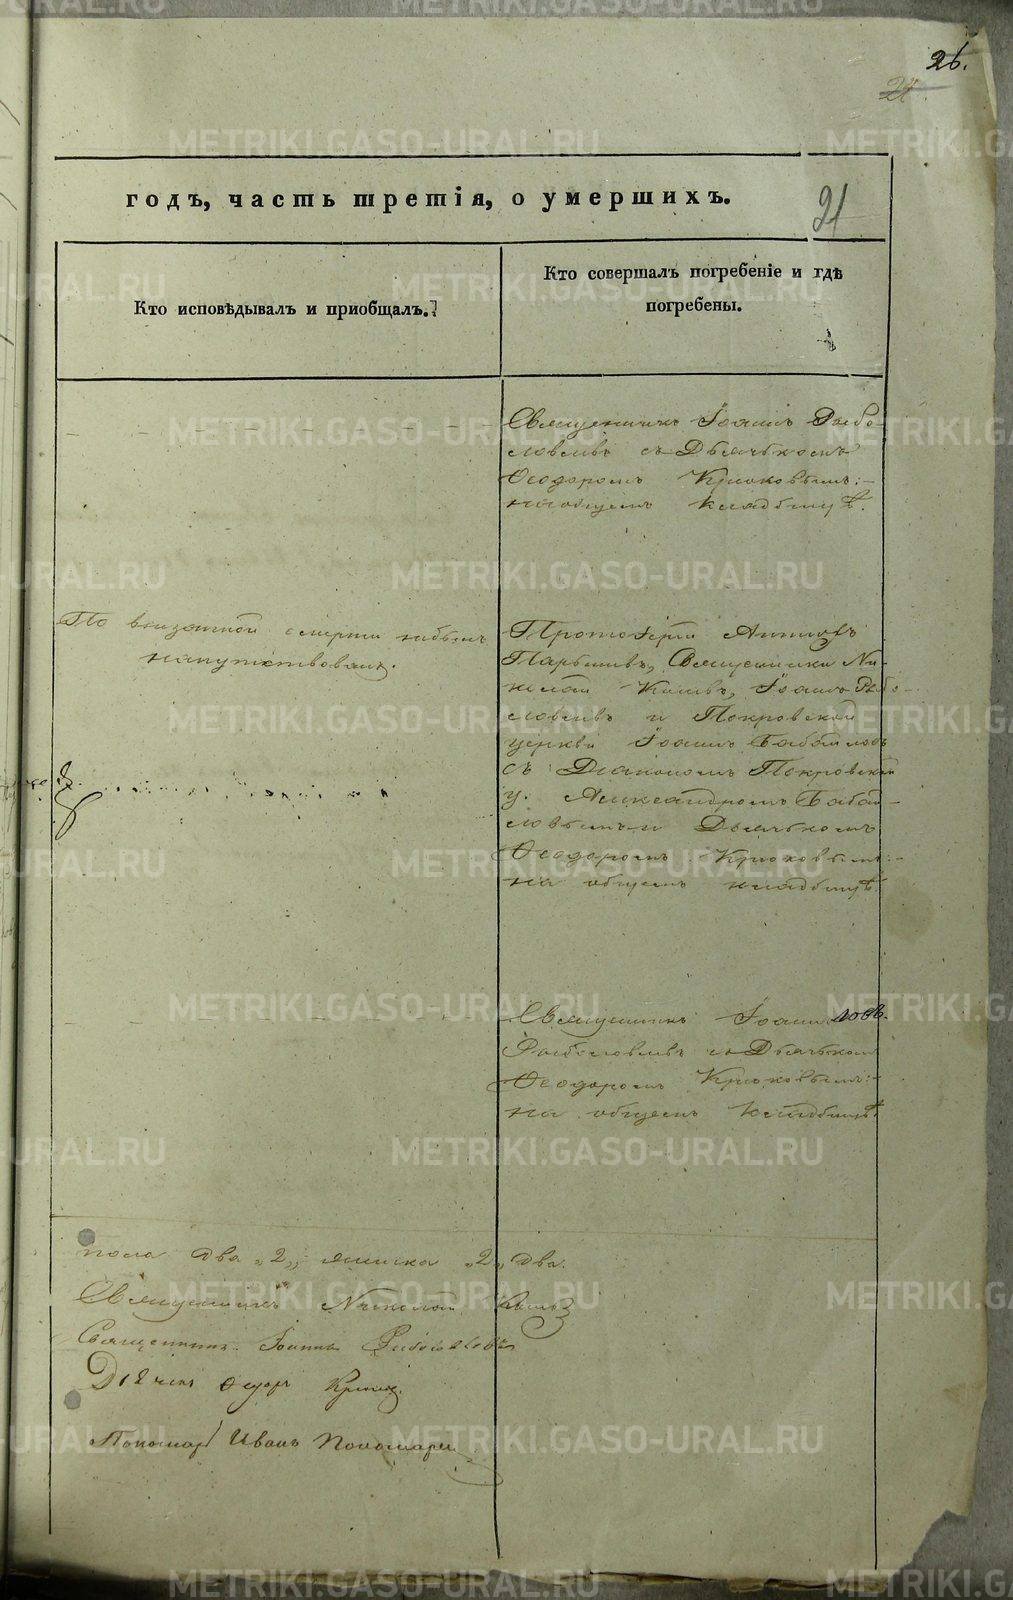 26.
21.
годъ, часть третія, о умершихъ.
21
Кто исповѣдывалъ и приобщалъ.
Кто совершалъ погребеніе и гдѣ
погребены.
Священникъ Іоаннъ
съ Дьячкомъ
Ѳеодоромъ Крюковымъ:
на общемъ кладбищѣ.
По внезапной смерти небылъ
напутствованъ.
Протоіерей
Священники Ни-
колай Іоаннъ
и Покровской
церкви Іоаннъ
съ Діакономъ Покровской
ц. Александромъ
и Дьячкомъ
Ѳеодоромъ Крюковымъ:
на общемъ кладбищѣ.
Священникъ Іоаннъ
съ Дьячкомъ
Ѳеодоромъ Крюковымъ:
на общемъ кладбищѣ.
пола два „2„ женска „2„ два.
Священникъ Николай
Священникъ Іоаннъ
Дьячекъ Ѳедоръ Крюковъ.
Пономарь Иванъ Пономарев
METRIKI.GASO-URAL.RU